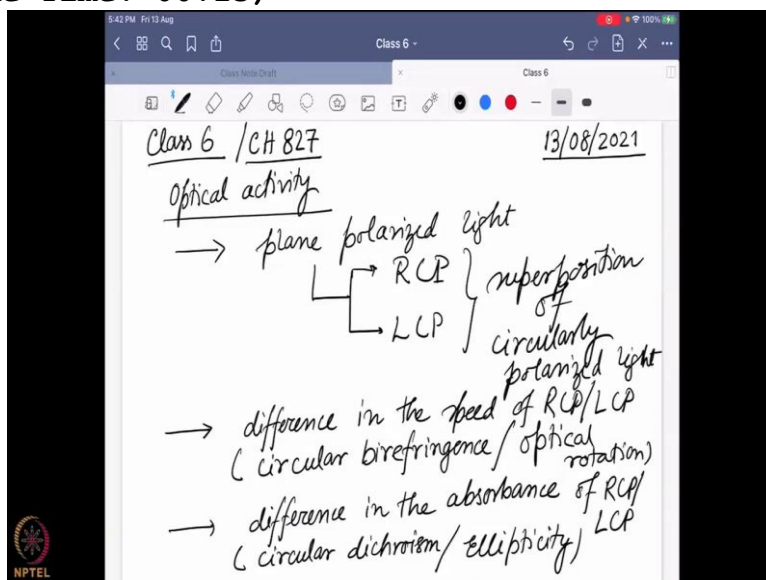 5:42 PM Fri 13 Aug
100%
Class 6
Class Note Draft
Class 6
Class 6 / CH 827 13/08/2021
Optical activity
→ plane polarized light
→ RCP
→ LCP
superposition
of
circularly
polarized light
→ difference in the speed of RCP/LCP
(circular birefringence / optical
rotation)
→ difference in the absorbance of RCP/
LCP
(circular dichroism / Ellipticity)
NPTEL